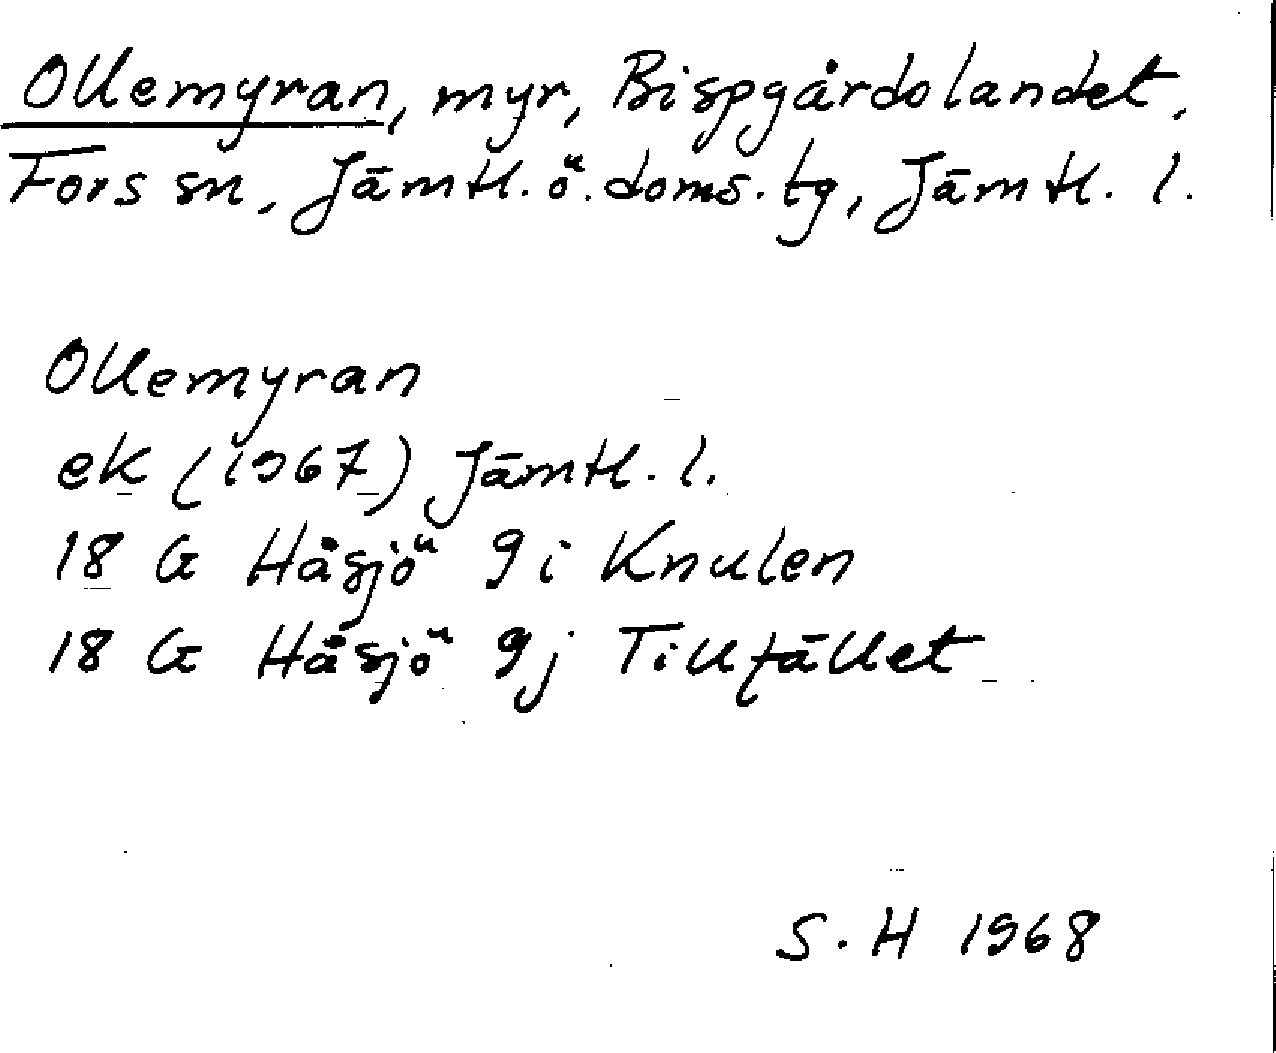 Ollemyran, myr, Bispgårdolandet,
Fors sn, Jämtl. ö. doms. tg, Jämtl. l.
Ollemyran
ek (1967) Jämtl. l.
18 G Håsjö 9 i Knulen
18 G Håsjö 9 j Tillfället
S. H 1968